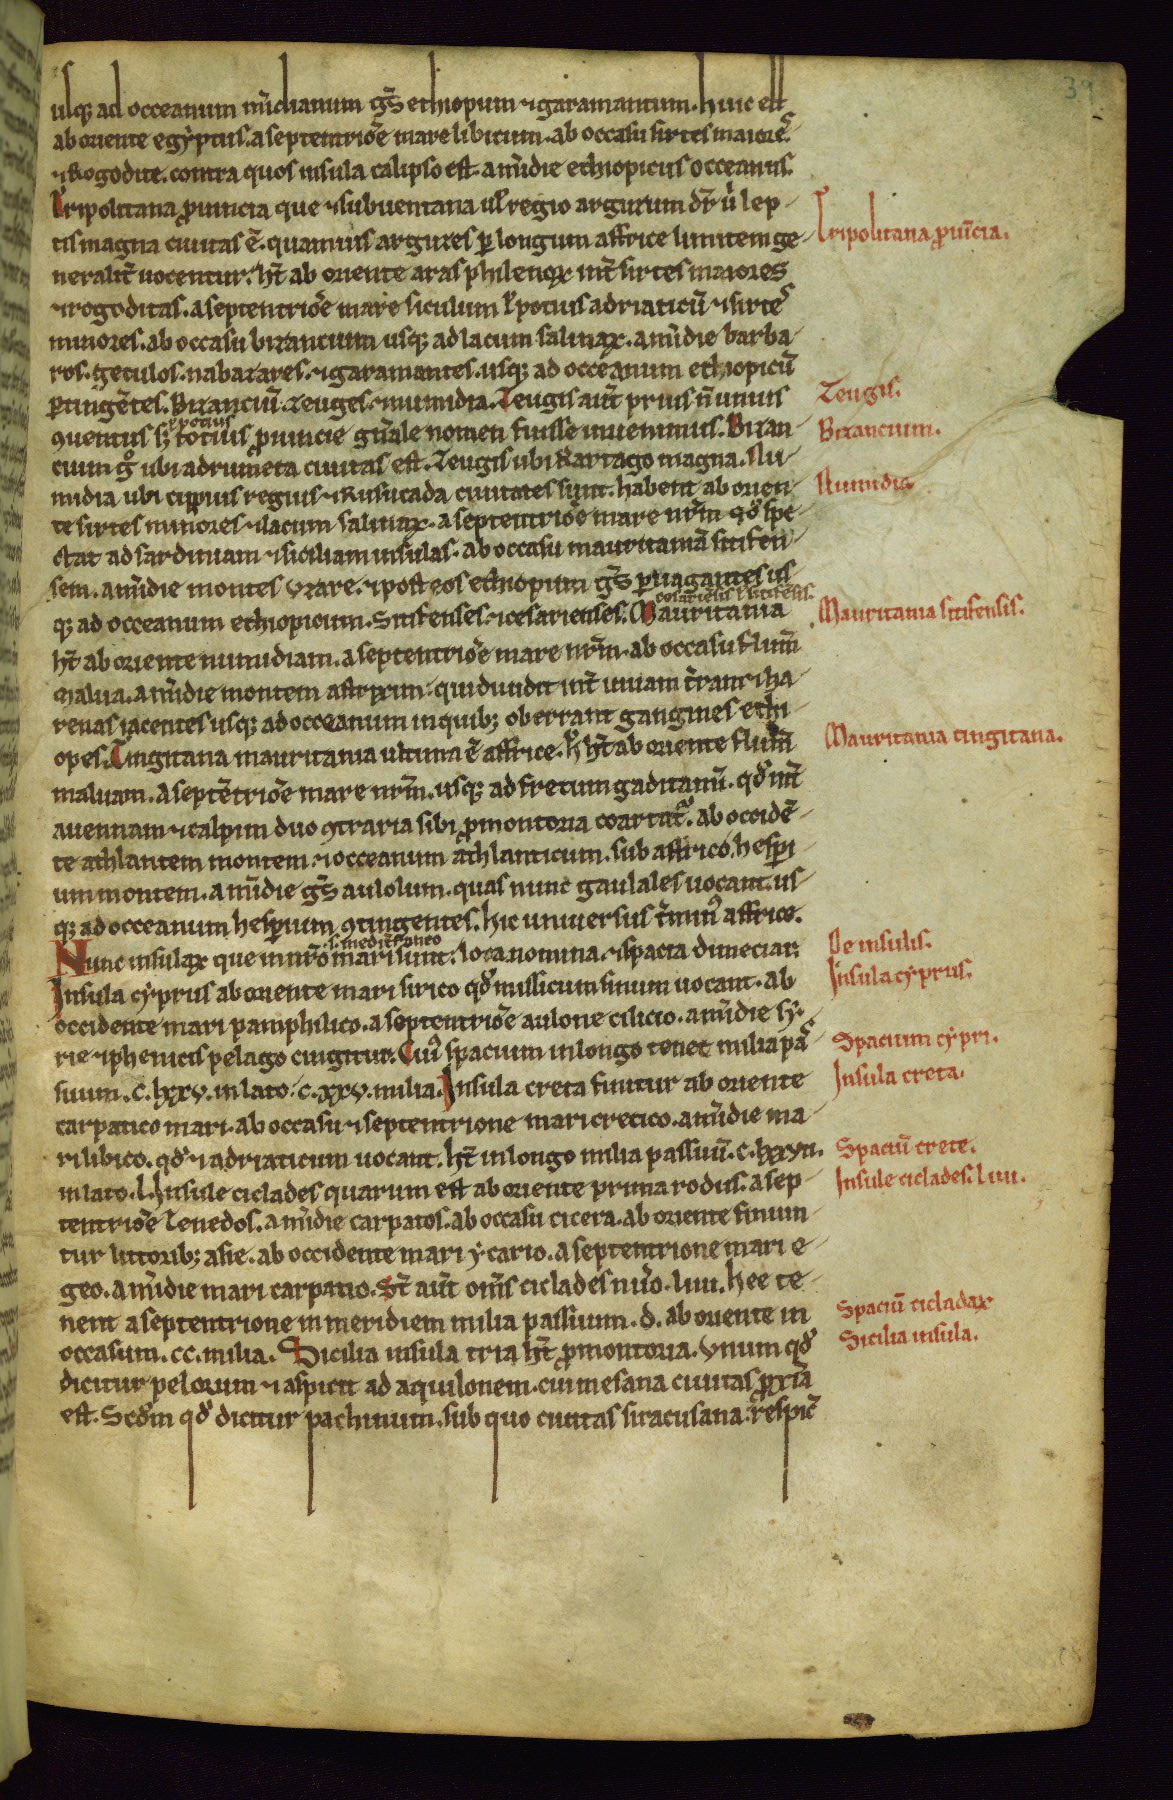 39
usq; ad occeanum m̄idianum gs̄ ethiopum ⁊ garamantum. huic est
ab oriente egẏptus. a septentriōe mare libicum. ab occasu sirtes maiores
⁊ Rogodite. contra quos insula calipso est. a m̄idie ethiopicus occeanus.
Tripolitana ꝓuincia que ⁊ subuentana ul̄ regio argutum dr̄ ù lep
tis magna ciuitas ē. quamuis argutes ꝑ longum affrice limitem ge
neralit̄ uocentur. ht̄ ab oriente aras philenoꝝ int̄ sirtes maiores
⁊ rogoditas. a septentriōe mare siculum ł potius adriaticū ⁊ sirtes
minores. ab occasu bizancium usq; ad lacum salinaꝝ. a m̄idie barba
ros. getulos. nabatares. ⁊ garamantes. usq; ad occeanum ethiopicū
ꝑtingētes. Bizanciū. Zeuges. ⁊ numidia. Zeugis aut̄ prius n̄ unius
ꝯuentus sꝫ totius ꝓuincie gn̄ale nomen fuisse inuenimus. Bizan
ł potius
cium gͦ ubi adrumeta ciuitas est. Zeugis ubi kartago magna. Nu
midia ubi cipius regius ⁊ Rusicada ciuitates sunt. habent ab orien
te sirtes minores ⁊ lacum salinaꝝ. a septentriōe mare nr̄m qđ spe
ctat ad sardiniam ⁊ siciliam insulas. ab occasu mauritaniā sitifen
sem. a m̄idie montes vzare. ⁊ post eos ethiopum gs̄ ꝑuagantes us
q; ad occeanum ethiopicum. Sitifenses. ⁊ cesarienses. Mauritania
cesariensis ł sitifensis.
ht̄ ab oriente numidiam. a septentriōe mare nr̄m. ab occasu flum̄
malua. a m̄idie montem astrixim. qui diuidit int̄ uiuam t̄ram ⁊ ha
renas iacentes usq; ad occeanum in quib; oberrant gangines ethi
opes. Tingitana mauritania ultima ē affrice. h̄ ht̄ ab oriente flum̄
maluam. a septētriōe mare nr̄m. usq; ad fretum gaditanū. qđ int̄
auennam ⁊ calpim duo ꝯtraria sibi ꝓmontoria coartat᷑. ab occidē
te athlantem montem. ⁊ occeanum athlanticum. sub affrico. hesp̄i
um montem. a m̄idie gs̄ aulolum. quas nunc gaulales uocant. us
q; ad occeanum hesp̄ium ꝯtingentes. hic uniuersus t̄minꝰ affrice.
Nunc insulaꝝ que in nr̄o mari sunt. loca. nomina. ⁊ spacia dimeciar.
.s. medit̄raneo
Insula cẏprus ab oriente mari sirico qđ missicum sinum uocant. ab
occidente mari pamphilico. a septentriōe aulone cilicio. a m̄idie sẏ
rie ⁊ phenicis pelago cingitur. Cuiꝰ spacium in longo tenet milia pas
suum. c. lxxv. in lato. c. xxv. milia. Insula creta finitur ab oriente
carpatico mari. ab occasu ⁊ septentrione mari cretico. a m̄idie ma
ri libico. qđ ⁊ adriaticum uocant. ht̄ in longo milia passuū. c. lxxvii.
in lato. l. Insule ciclades quarum est ab oriente prima rodus. a sep
tentriōe Tenedos. a m̄idie carpatos. ab occasu cicera. ab oriente finiun
tur littorib; asie. ab occidente mari ẏcario. a septentrione mari e
geo. a m̄idie mari carpatio. St̄ aut̄ om̄s ciclades nūo. liiii. hee te
nent a septentrione in meridiem milia passuum. d. ab oriente in
occasum. cc. milia. Sicilia insula tria ht̄ ꝓmontoria. vnum qđ
dicitur pelorum ⁊ aspicit ad aquilonem. cui mesana ciuitas ꝓxīa
est. Scđm qđ dicitur pachinum. sub quo ciuitas siracusana respic̄
Tripolitana ꝓuīcia.
Zeugis.
Bizancium.
Numidia
Mauritania sitifensis.
Mauritania tingitana.
De insulis.
Insula cẏprus.
Spacium cẏpri.
Insula creta.
Spaciū crete.
Insule ciclades. liiii.
Spaciū cicladaꝝ
Sicilia insula.